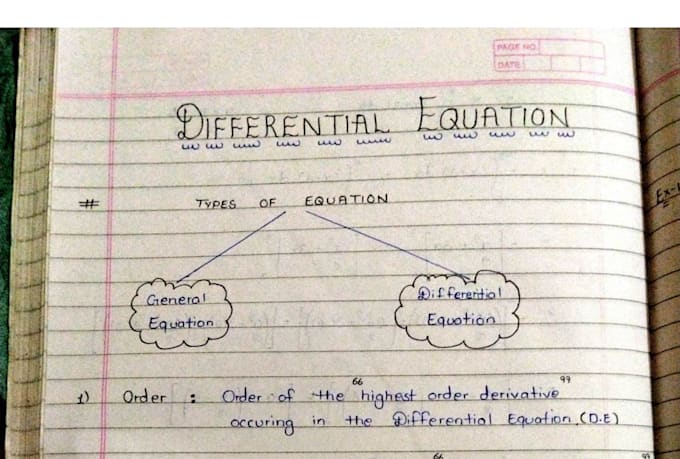 PAGE NO.
DATE
DIFFERENTIAL EQUATION
# TYPES OF EQUATION
General
Equation
Differential
Equation
1) Order : Order of the “highest order derivative”
occuring in the Differential Equation.(D.E)